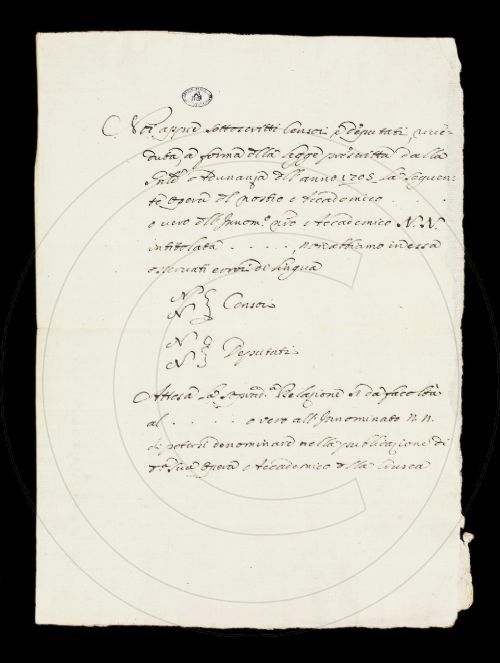 Noi appiè sottoscritti Censori, e Deputati, rive-
duta, a forma della Legge prescritta dalla
Adunanza dell'anno 1705 la seguen-
te Opera del nostro Accademico . .
o vero dell'Innom.º nro Accademico N. N.
intitolata . . . . . non abbiamo in essa
osservati errori di lingua
N
N Censori
N
N Deputati
Attesa la Relazione si dà facoltà
al . . . . . o vero all'Innominato N. N.
di potersi denominare nella pubblicazione di
d.ª sua Opera Accademico della Crusca